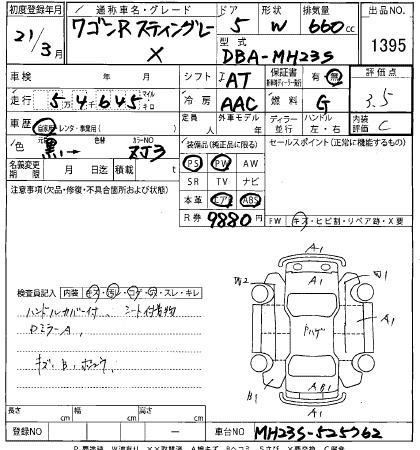 初度登録年月 通称車名・グレード ドア 形状 排気量 出品NO
21/3月 ワゴンR スティングレー X 5 W 660cc 1395
型式 DBA-MH23S
車検 年 月 シフト AT 保証書 有・無 評価点
走行 5万4645 マイル キロ 冷房 AAC 燃料 G 3.5
車歴 自家用・レンタ・事業用( ) 定員 人 外車モデル 年 ディーラー 並行 ハンドル 左・右 内装評価 C
色 元色 黒 色替 カラーNO ZJ3 装備品(純正品に限る) セールスポイント(正常に機能するもの)
名義変更期限 月 日迄 積載 t PS PW AW
注意事項(欠品・修復・不具合箇所および状態) SR TV ナビ
本革 エア ABS
R券 9880円 FW キズ・ヒビ割・リペア跡・X要
検査員記入 内装 キズ・汚れ・コゲ・穴・スレ・キレ
ハンドルカバー付 シート付着物
Dミラー A
キズ、B
A1
A1
W2
1
Pハゲ
A1
B1
AB1
A1
長さ cm 幅 cm 高さ cm
登録NO ー 車台NO MH23S-525762